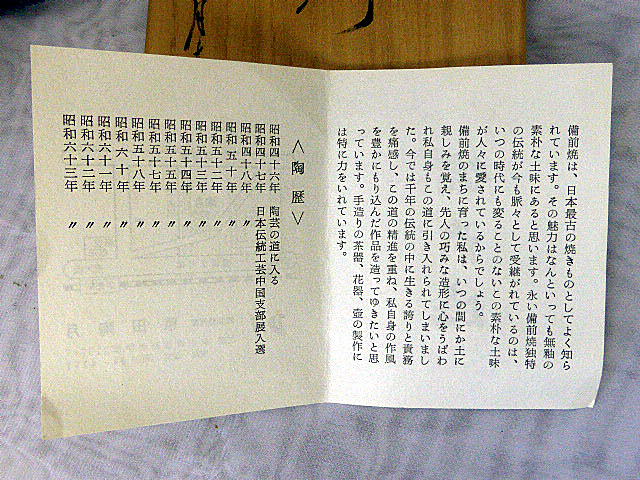 備前焼は、日本最古の焼きものとしてよく知ら
れています。その魅力はなんといっても無釉の
素朴な土味にあると思います。永い備前焼独特
の伝統が今も脈々として受継がれているのは、
いつの時代にも変ることのないこの素朴な土味
が人々に愛されているからでしょう。
備前焼のまちに育った私は、いつの間にか土に
親しみを覚え、先人の巧みな造形に心をうばわ
れ私自身もこの道に引き入れられてしまいまし
た。今では千年の伝統の中に生きる誇りと責務
を痛感し、この道の精進を重ね、私自身の作風
を豊かにもり込んだ作品を造ってゆきたいと思
っています。手造りの茶器、花器、壺の製作に
は特に力をいれています。
〈陶歴〉
昭和四十六年 陶芸の道に入る
昭和四十七年 日本伝統工芸中国支部展入選
昭和四十八年 〃
昭和五十年 〃
昭和五十二年 〃
昭和五十三年 〃
昭和五十四年 〃
昭和五十五年 〃
昭和五十八年 〃
昭和六十年 〃
昭和六十一年 〃
昭和六十二年 〃
昭和六十三年 〃